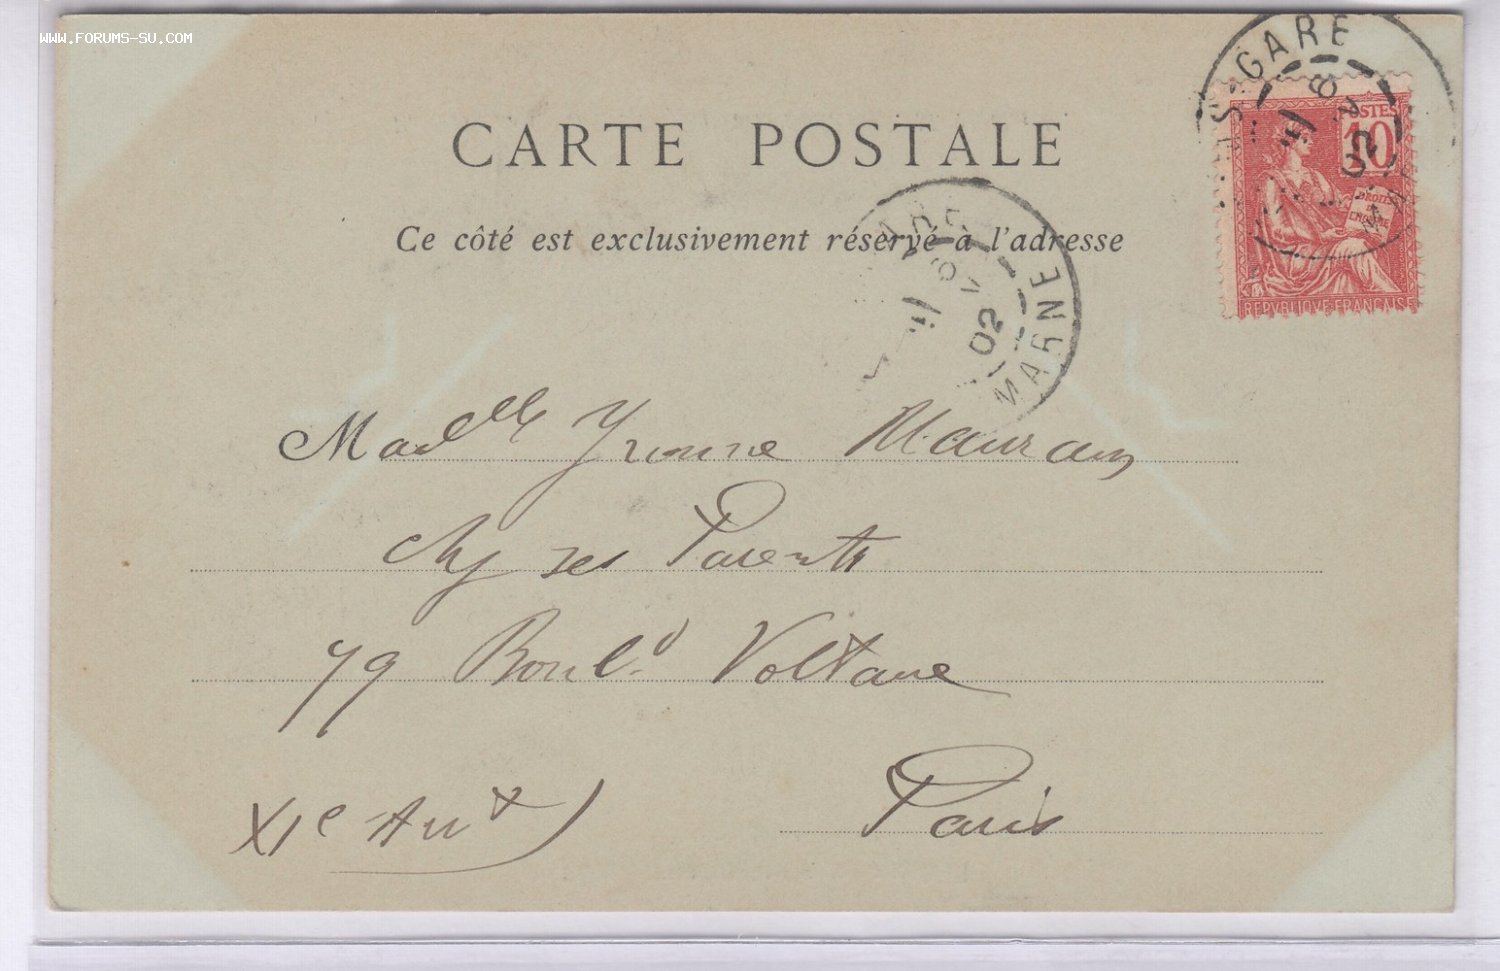 WWW.FORUMS-SU.COM
GARE
POSTES
10
DROITS
DE
L'HOMME
REPVBLIQVE FRANÇAISE
02
MARNE
CARTE POSTALE
Ce côté est exclusivement réservé à l'adresse
6
02
MARNE
Madelle Yvonne
chez ses Parents
79 Boul.d Voltaire
Paris
XIe Arrt)